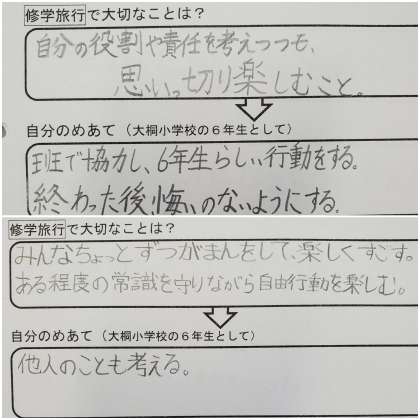 修学旅行で大切なことは？
自分の役割や責任を考えつつも、
思いっ切り楽しむこと。
自分のめあて（大桐小学校の６年生として）
班で協力し、6年生らしい行動をする。
終わった後、悔いのないようにする。
修学旅行で大切なことは？
みんなちょっとずつがまんをして、楽しくすごす。
ある程度の常識を守りながら自由行動を楽しむ。
自分のめあて（大桐小学校の６年生として）
他人のことも考える。